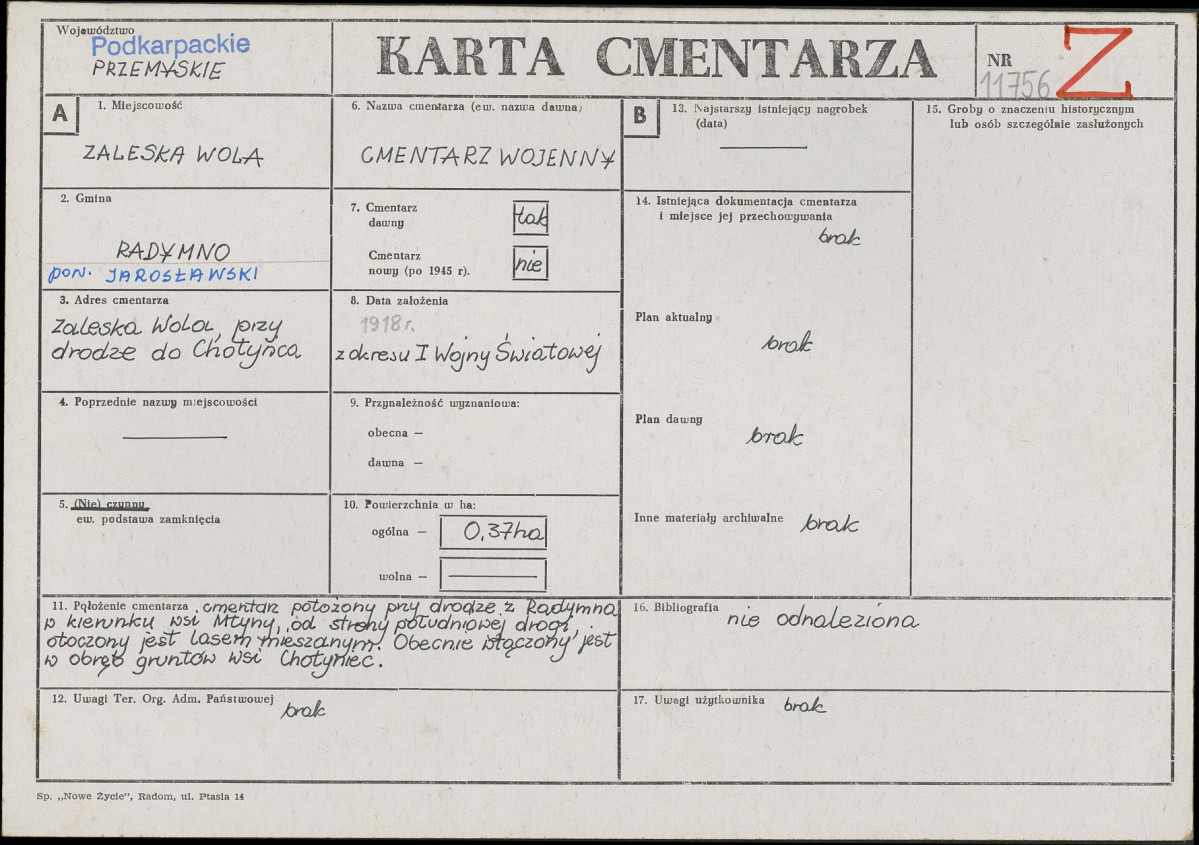 Województwo
Podkarpackie
PRZEMYSKIE
KARTA CMENTARZA
NR
11756
Z
A
1. Miejscowość
ZALESKA WOLA
2. Gmina
RADYMNO
pow. JAROSŁAWSKI
3. Adres cmentarza
Zaleska Wola, przy
drodze do Chotyńca
4. Poprzednie nazwy miejscowości
5. (Nie) czynny
ew. podstawa zamknięcia
6. Nazwa cmentarza (ew. nazwa dawna)
CMENTARZ WOJENNY
7. Cmentarz
dawny
tak
Cmentarz
nowy (po 1945 r).
nie
8. Data założenia
1918 r.
z okresu I Wojny Światowej
9. Przynależność wyznaniowa:
obecna —
dawna —
10. Powierzchnia w ha:
ogólna — 0,37ha
wolna —
11. Położenie cmentarza cmentarz położony przy drodze z Radymna
w kierunku wsi Młyny, od strony południowej drogi,
otoczony jest lasem mieszanym. Obecnie włączony jest
w obręb gruntów wsi Chotyniec.
12. Uwagi Ter. Org. Adm. Państwowej
brak
B
13. Najstarszy istniejący nagrobek
(data)
14. Istniejąca dokumentacja cmentarza
i miejsce jej przechowywania
brak
Plan aktualny
brak
Plan dawny
brak
Inne materiały archiwalne brak
15. Groby o znaczeniu historycznym
lub osób szczególnie zasłużonych
16. Bibliografia
nie odnaleziona
17. Uwagi użytkownika brak
Sp. „Nowe Życie", Radom, ul. Ptasia 14